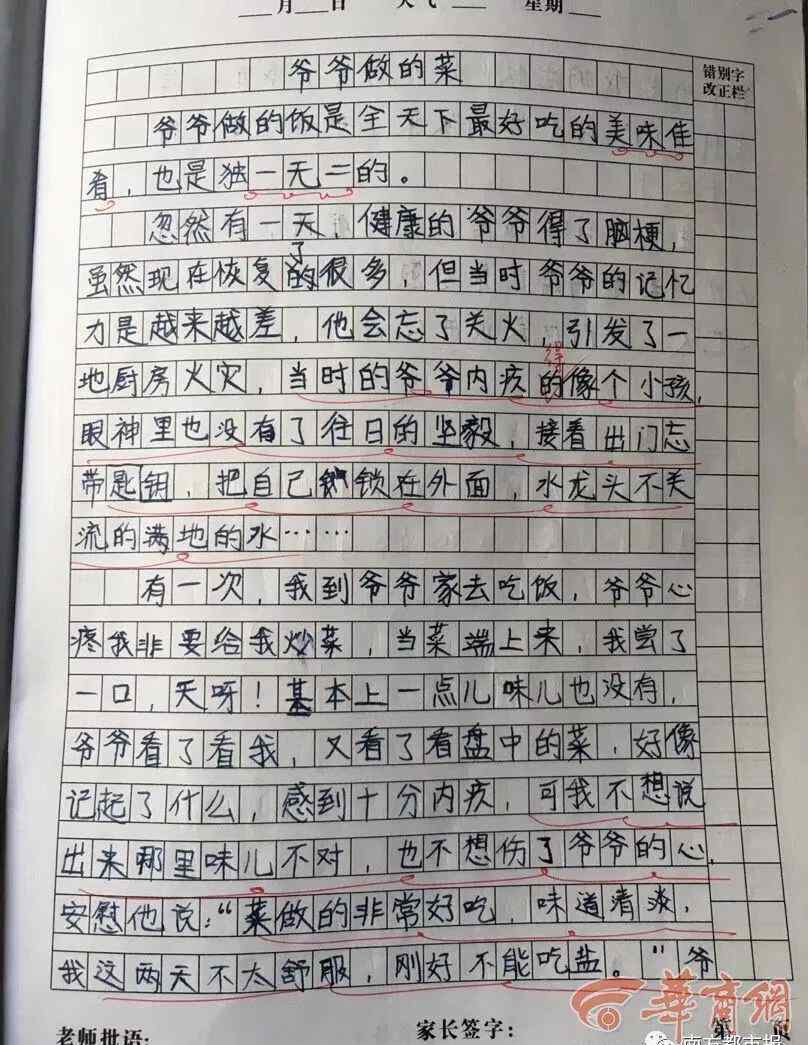 月 日 天气 星期
爷爷做的菜
错别字
改正栏
爷爷做的饭是全天下最好吃的美味佳
肴，也是独一无二的。
忽然有一天，健康的爷爷得了脑梗，
虽然现在恢复的很多，但当时爷爷的记忆
了
力是越来越差，他会忘了关火，引发了一
得
地厨房火灾，当时的爷爷内疚的像个小孩，
眼神里也没有了往日的坚毅，接着出门忘
带匙钥，把自己锁在外面，水龙头不关
流的满地的水……
有一次，我到爷爷家去吃饭，爷爷心
疼我非要给我炒菜，当菜端上来，我尝了
一口，天呀！基本上一点儿味儿也没有，
爷爷看了看我，又看了看盘中的菜，好像
记起了什么，感到十分内疚，可我不想说
出来哪里味儿不对，也不想伤了爷爷的心，
安慰他说：“菜做的非常好吃，味道清淡，
我这两天不太舒服，刚好不能吃盐。”爷
華商網
老师批语： 家长签字： 第 页
南方都市报